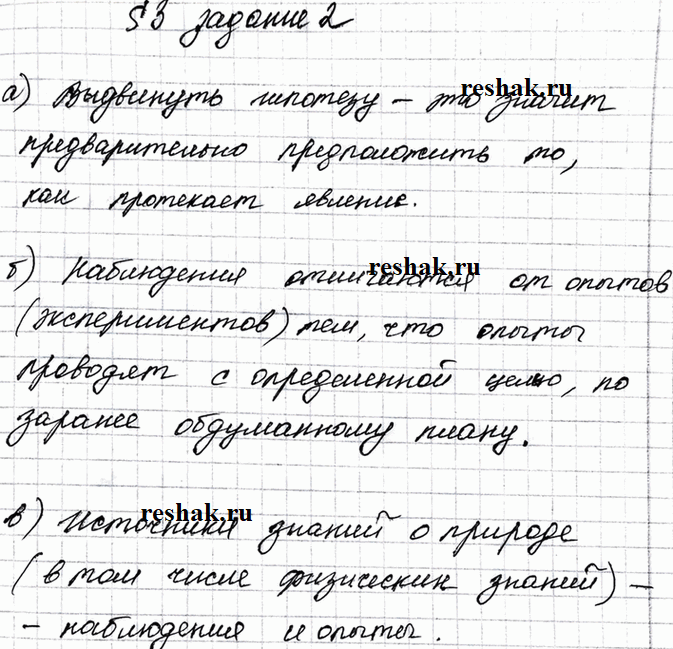 §3 задание 2
а) Выдвинуть гипотезу – это значит
reshak.ru
предварительно предположить то,
как протекает явление.
б) Наблюдения отличаются от опытов
reshak.ru
(экспериментов) тем, что опыты
проводят с определенной целью, по
заранее обдуманному плану.
reshak.ru
в) Источники знаний о природе
(в том числе физических знаний) –
– наблюдения и опыты.